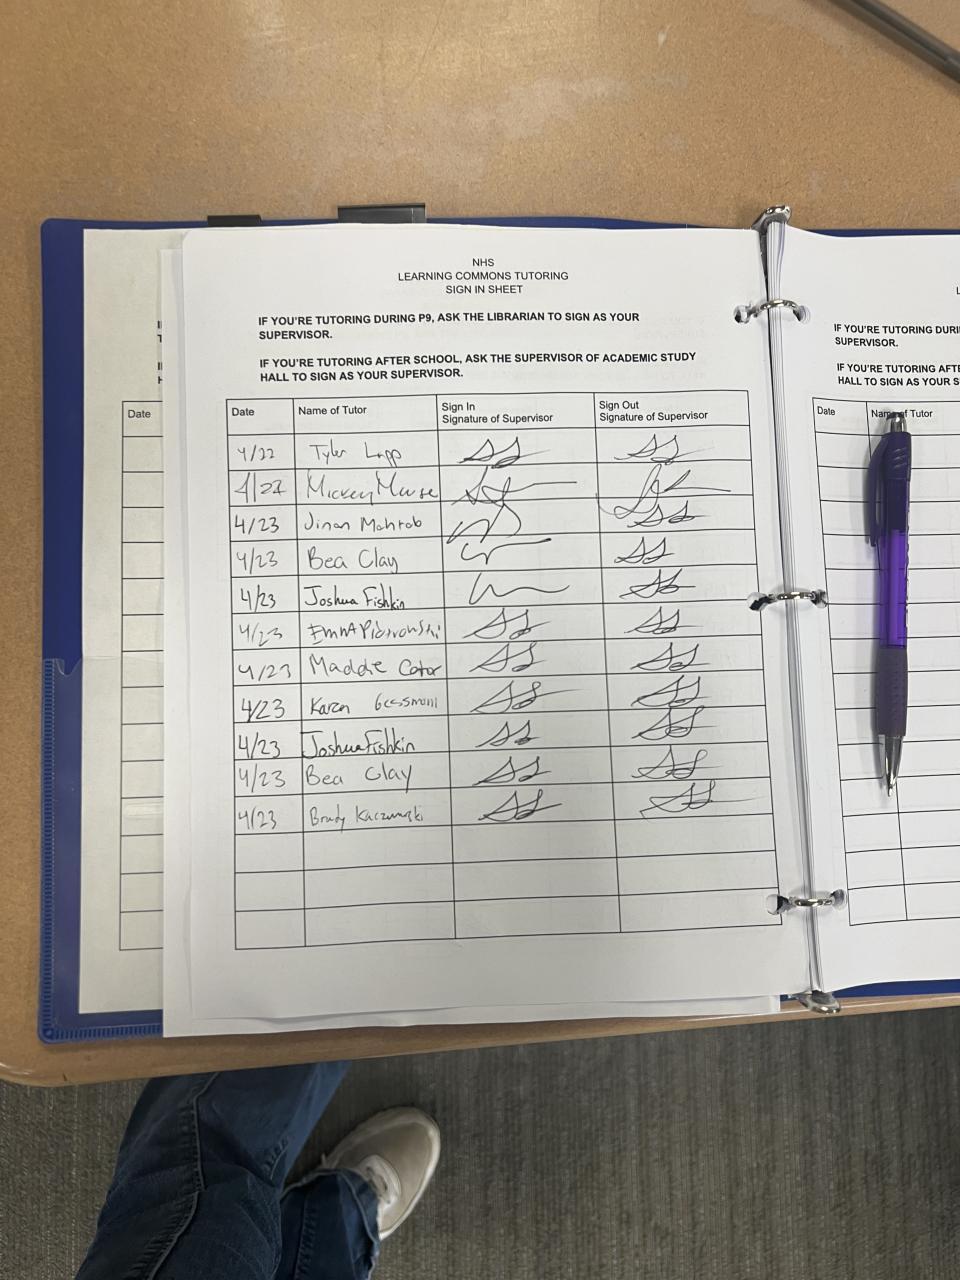 NHS
LEARNING COMMONS TUTORING
SIGN IN SHEET
IF YOU'RE TUTORING DURING P9, ASK THE LIBRARIAN TO SIGN AS YOUR
SUPERVISOR.
IF YOU'RE TUTORING AFTER SCHOOL, ASK THE SUPERVISOR OF ACADEMIC STUDY
HALL TO SIGN AS YOUR SUPERVISOR.
Date Name of Tutor Sign In Signature of Supervisor Sign Out Signature of Supervisor
4/22 Tyler Lapp
4/22 Mickey Mouse
4/23 Jinan Mahtab
4/23 Bea Clay
4/23 Joshua Fishkin
4/23
4/23 Maddie Cator
4/23 Karen
4/23 Joshua Fishkin
4/23 Bea Clay
4/23 Brady
Date
IF YOU'RE TUTORING DURI
SUPERVISOR.
IF YOU'RE TUTORING AFTE
HALL TO SIGN AS YOUR S
Date Name of Tutor